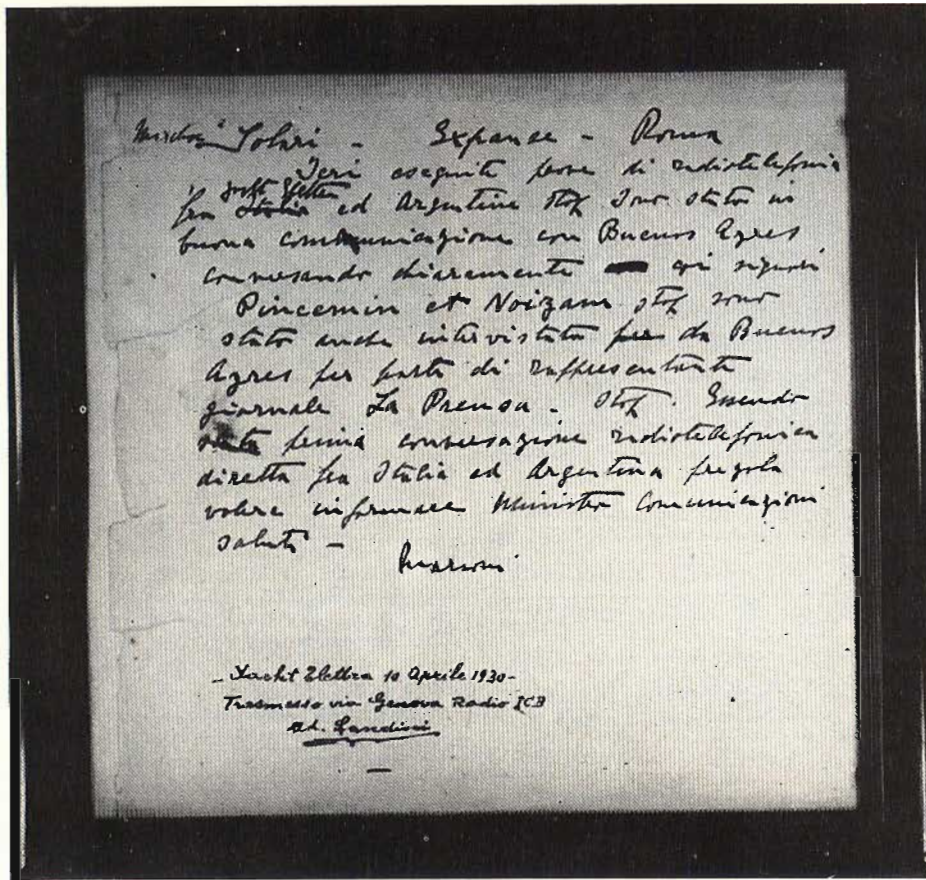 Solari - Expanse - Roma
Ieri eseguite prove di radiotelefonia
fra Yacht Elettra ed Argentina stop Sono stato in
buona communicazione con Buenos Ayres
conversando chiaramente coi signori
Pincemin et Noizeux stop sono
stato anche intervistato da Buenos
Ayres per parte di rappresentante
giornale La Prensa - stop. Essendo
stata prima conversazione radiotelefonica
diretta fra Italia ed Argentina pregola
volere informare Ministro Comunicazioni
saluti -
Marconi
- Yacht Elettra 10 Aprile 1930 -
Trasmesso via Genova Radio ICB
Ad. Landini